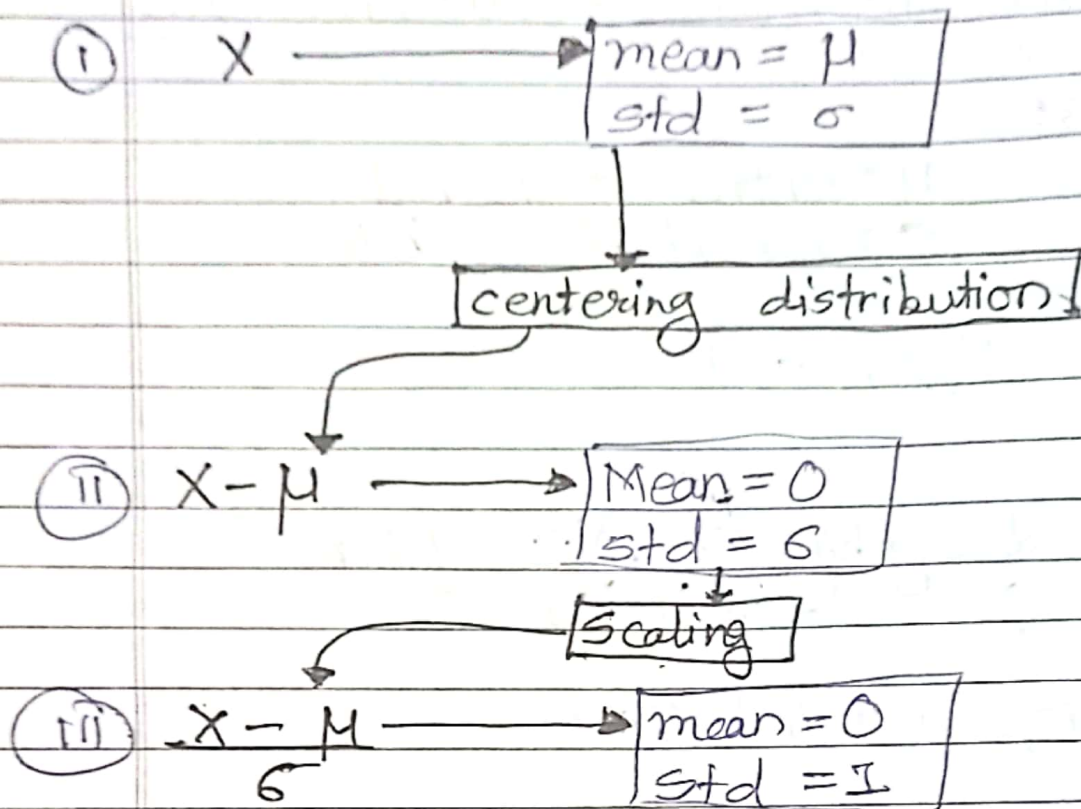 ① X → mean = μ
std = σ
centering distribution
ⅠⅠ X - μ → Mean = 0
std = 6
Scaling
ⅠⅠⅠ X - μ → mean = 0
6 std = I